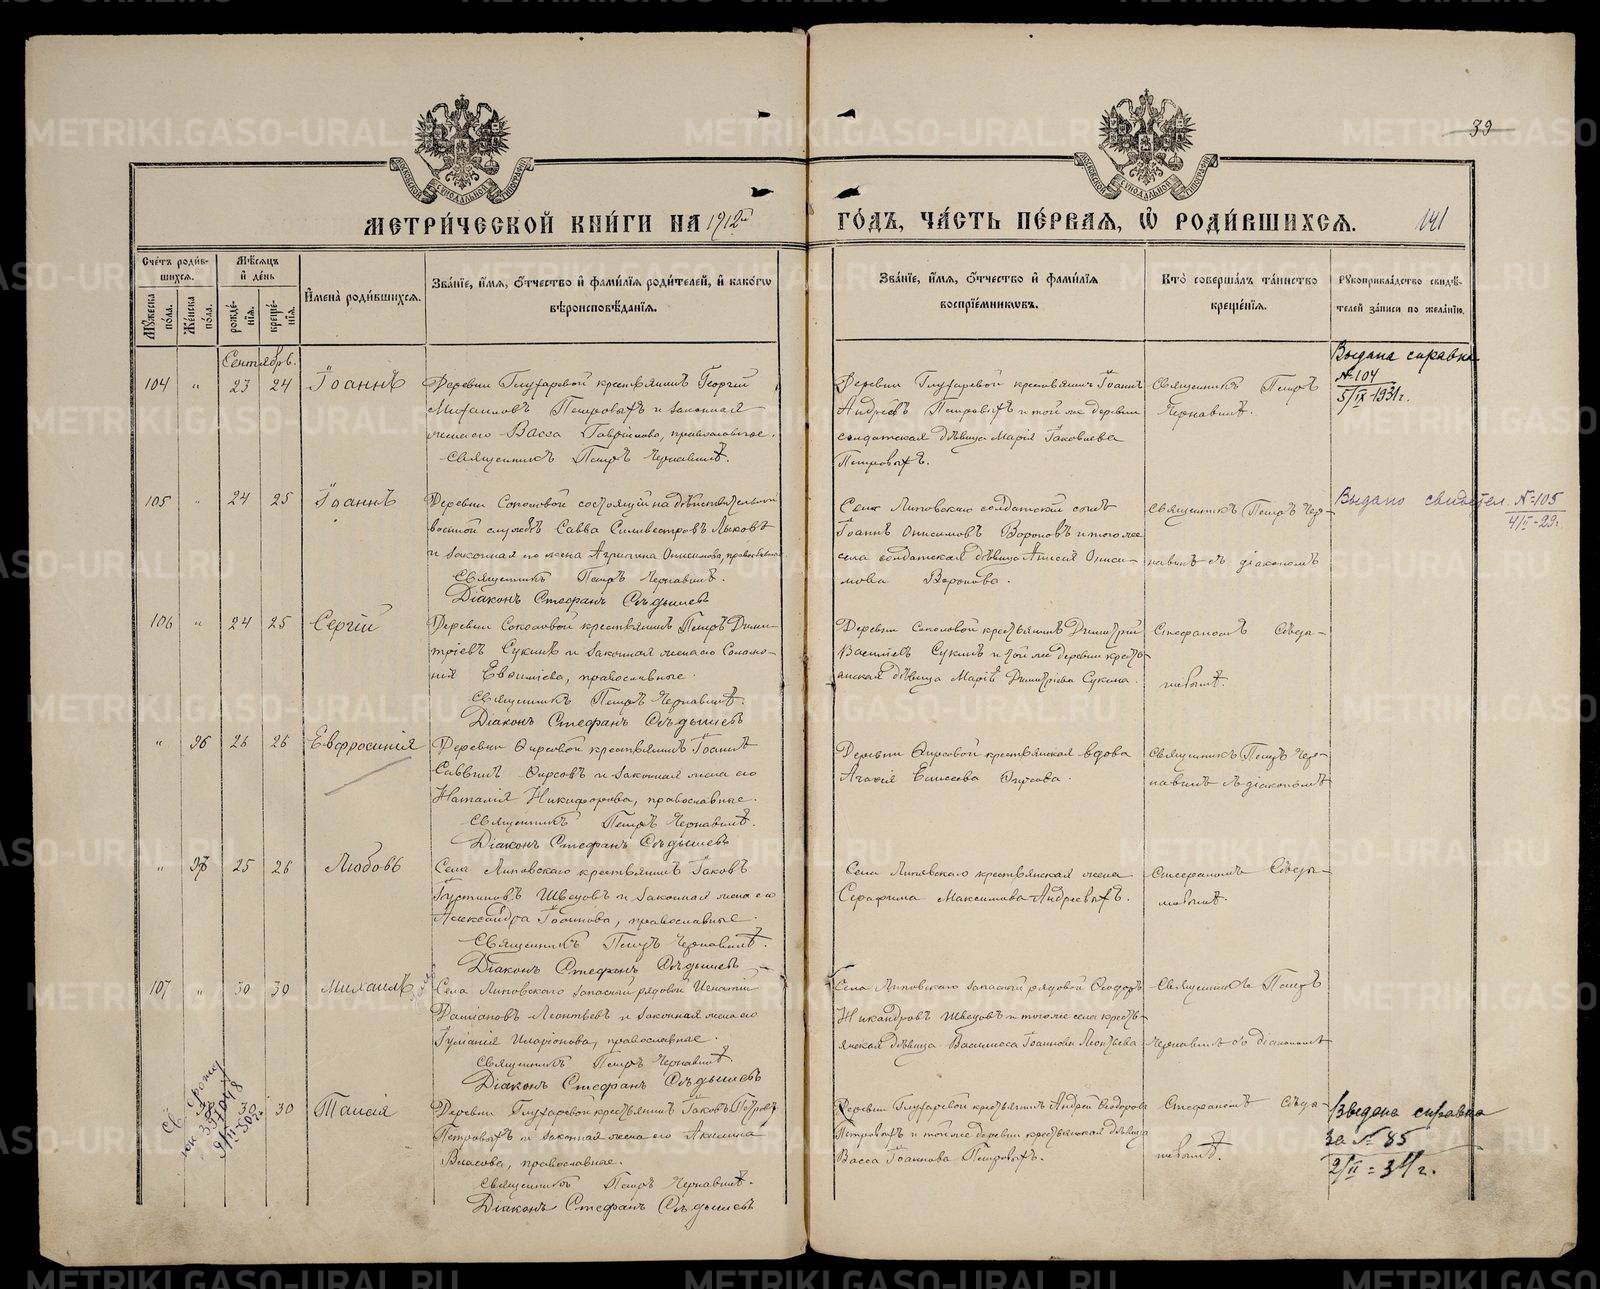 39
МЕТРИ́ЧЕСКОЙ КНИ́ГИ НА 1912й ГО́ДЪ, ЧА́СТЬ ПЕ́РВАЯ, Ѡ РОДИ́ВШИХСЯ.
141
Сче́тъ роди́в-
шихся.
Мꙋ́жеска по́ла.
Же́нска по́ла.
Мѣ́сяцъ
и де́нь
рожде́-
нїя.
креще́-
нїя.
И҆мена̀ роди́вшихся.
Зва́нїе, и҆́мя, ѻ҆́тчество и҆ фами́лїя роди́телей, и҆ како́гѡ
вѣроисповѣ́данїя.
Зва́нїе, и҆́мя, ѻ҆́тчество и҆ фами́лїя
воспрїе́мникѡвъ.
Кто̀ соверша́лъ та́инство
креще́нїя.
Рꙋкоприкла́дство свидѣ́-
телей за́писи по жела́нїю.
Сентябрь.
104 " 23 24 Іоаннъ
Деревни Глухаревой крестьянинъ Георгій
Михаиловъ Петровыхъ и законная
жена его Васса Гавріилова, православные.
Священникъ Петръ Чернавинъ.
Деревни Глухаревой крестьянинъ Іоаннъ
Андреевъ Петровыхъ и той же деревни
солдатская дѣвица Марія Іаковлева
Петровыхъ.
Священникъ Петръ
Чернавинъ.
Выдана справка
№ 104
5/IX-1931г.
105 " 24 25 Іоаннъ
Деревни Соколовой состоящій на дѣйствительной
военной службѣ Савва Силивестровъ Лыковъ
и законная его жена Агрипина Онисимова, православные
Священникъ Петръ Чернавинъ.
Діаконъ Стефанъ Сѣдышевъ
Села Липовскаго солдатскій сынъ
Іоаннъ Онисимовъ Вороновъ и того же
села солдатская дѣвица Анисія Ониси-
мова Воронова.
Священникъ Петръ Чер-
навинъ съ діакономъ
Выдано свидетел. №105
4/II-29г.
106 " 24 25 Сергій
Деревни Соколовой крестьянинъ Петръ Дими-
тріевъ Сукинъ и законная жена его Соломо-
нія Евѳиміева, православные.
Священникъ Петръ Чернавинъ.
Діаконъ Стефанъ Сѣдышевъ
Деревни Соколовой крестьянинъ Димитрій
Васильевъ Сукинъ и той же деревни кресть-
янская дѣвица Марія Димитріева Сукина.
Стефаномъ Сѣды-
шевымъ.
" 96 26 26 Евфросинія
Деревни Ѳирсовой крестьянинъ Іоаннъ
Саввинъ Ѳирсовъ и законная жена его
Наталія Никифорова, православные.
Священникъ Петръ Чернавинъ.
Діаконъ Стефанъ Сѣдышевъ
Деревни Ѳирсовой крестьянская вдова
Агафія Елисеева Ѳирсова.
Священникъ Петръ Чер-
навинъ съ діакономъ
" 97 25 26 Любовь
Села Липовскаго крестьянинъ Іаковъ
Іустиновъ Швецовъ и законная жена его
Александра Іоаннова, православные.
Священникъ Петръ Чернавинъ.
Діаконъ Стефанъ Сѣдышевъ
Села Липовскаго крестьянская жена
Серафима Максимова Андреевыхъ.
Стефаномъ Сѣды-
шевымъ.
107 " 30 30 Михаилъ
Села Липовскаго запасный рядовой Игнатій
Даміановъ Леонтьевъ и законная жена его
Іуліанія Иларіонова, православные.
Священникъ Петръ Чернавинъ.
Діаконъ Стефанъ Сѣдышевъ
Села Липовскаго запасный рядовой Ѳеодоръ
Никандровъ Швецовъ и того же села кресть-
янская дѣвица Василисса Іоаннова Леонтьева
Священникъ Петръ
Чернавинъ съ діакономъ
30 30 Таисія
Деревни Глухаревой крестьянинъ Іаковъ Петровъ
Петровыхъ и законная жена его Акилина
Власова, православные.
Священникъ Петръ Чернавинъ.
Діаконъ Стефанъ Сѣдышевъ
Деревни Глухаревой крестьянинъ Андрей Ѳеодоровъ
Петровыхъ и той же деревни крестьянская дѣвица
Васса Іоаннова Петровыхъ.
Стефаномъ Сѣды-
шевымъ.
Выдана справка
за № 85
2/II=34г.
METRIKI.GASO-URAL.RU